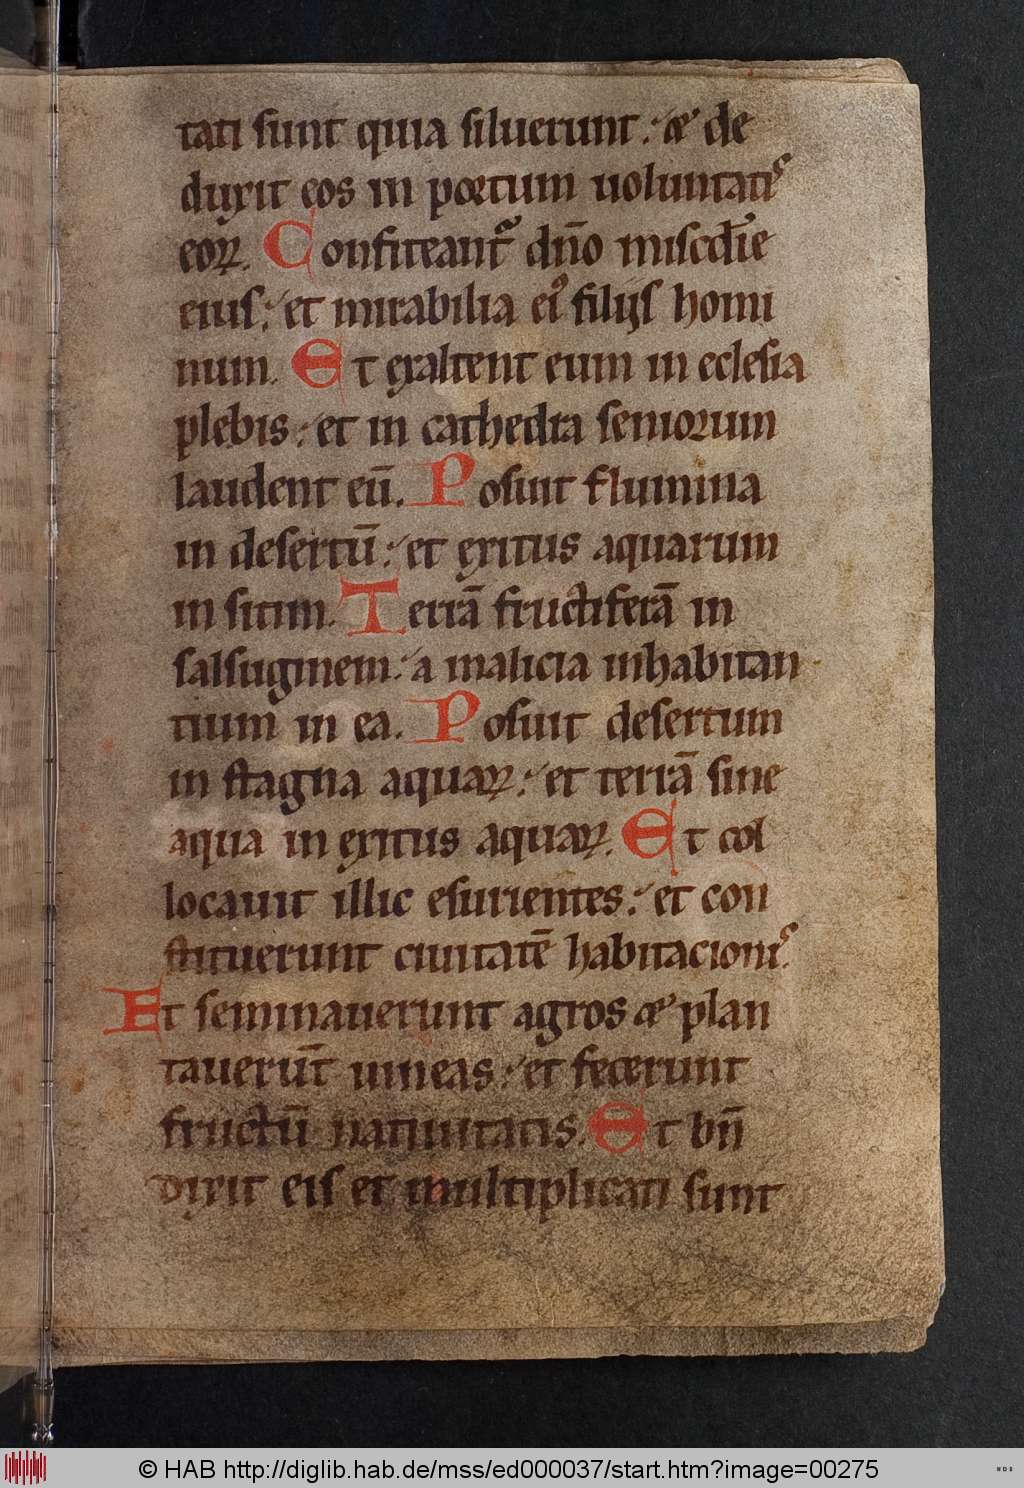 tati sunt quia siluerunt: & de
duxit eos in portum uoluntatiˢ
eoꝝ. Confiteant᷑ dn̄o misc̄die
eius: et mirabilia ei᷒ filijs homi
num. Et exaltent eum in eclesia
plebis: et in cathedra seniorum
laudent eū. Posuit flumina
in desertū: et exitus aquarum
in sitim. Terrā fructiferā in
salsuginem: a malicia inhabitan
tium in ea. Posuit desertum
in stagna aquaꝝ: et terrā sine
aqua in exitus aquaꝝ. Et col
locauit illic esurientes: et con
stituerunt ciuitatē habitacioniˢ.
Et seminauerunt agros & plan
tauerūt uineas: et fecerunt
fructū natiuitatis. Et bn̄
dixit eis et multiplicati sunt
© HAB http://diglib.hab.de/mss/ed000037/start.htm?image=00275